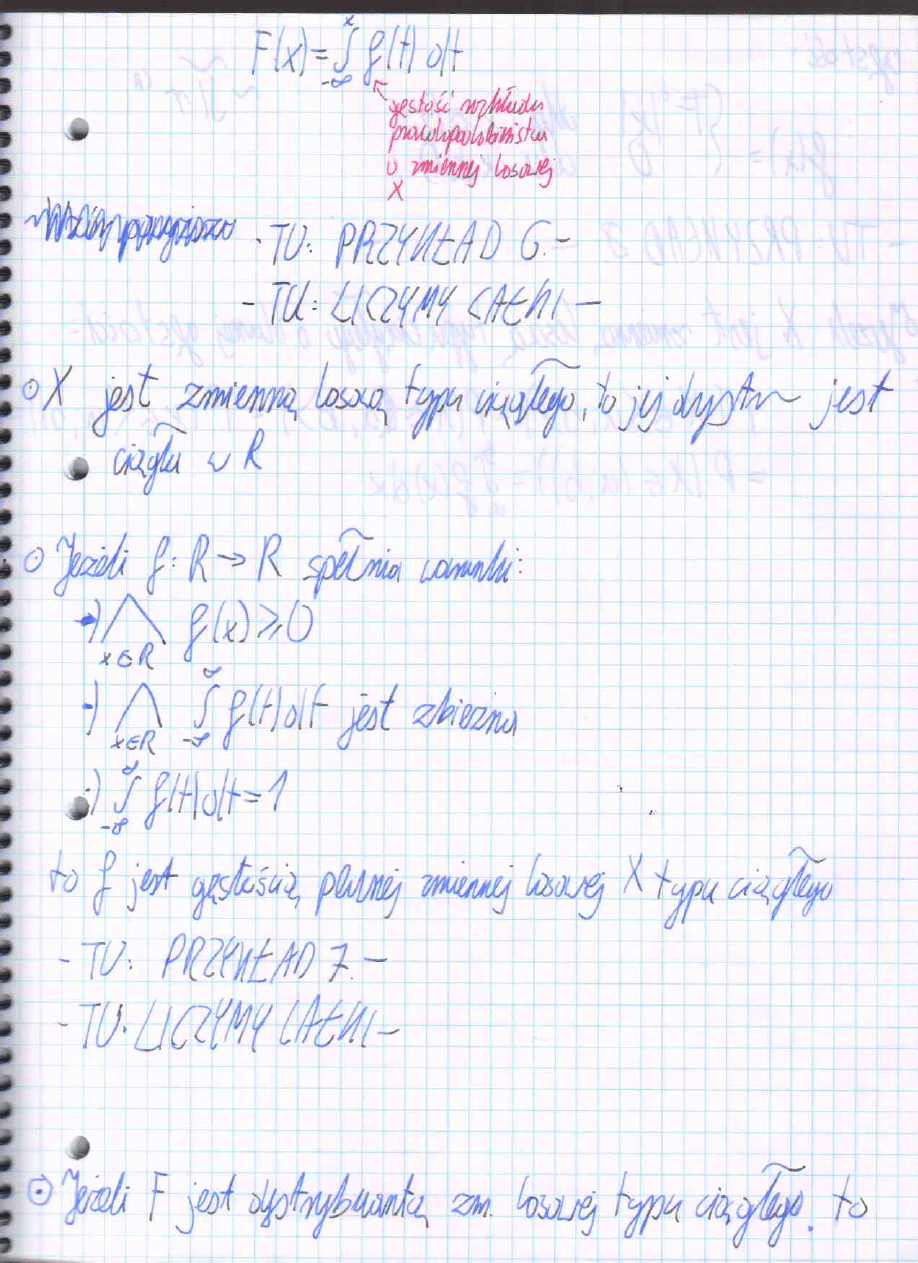 F(x)=∫_{-∞}^{x} f(t) dt
gęstość rozkładu
prawdopodobieństwa
zmiennej losowej
X
-TU: PRZYKŁAD 6.-
-TU: LICZYMY CAŁKI-
⊙ X jest zmienną losową typu ciągłego, to jej dystr~ jest
ciągła w R
⊙ Jeżeli f: R → R spełnia warunki:
•) ⋀_{x∈R} f(x) ≥ 0
•) ⋀_{x∈R} ∫_{-∞}^{∞} f(t) dt jest zbieżna
•) ∫_{-∞}^{∞} f(t) dt = 1
to f jest gęstością pewnej zmiennej losowej X typu ciągłego
-TU: PRZYKŁAD 7.-
-TU: LICZYMY CAŁKI-
⊙ Jeżeli F jest dystrybuantą zm. losowej typu ciągłego. to